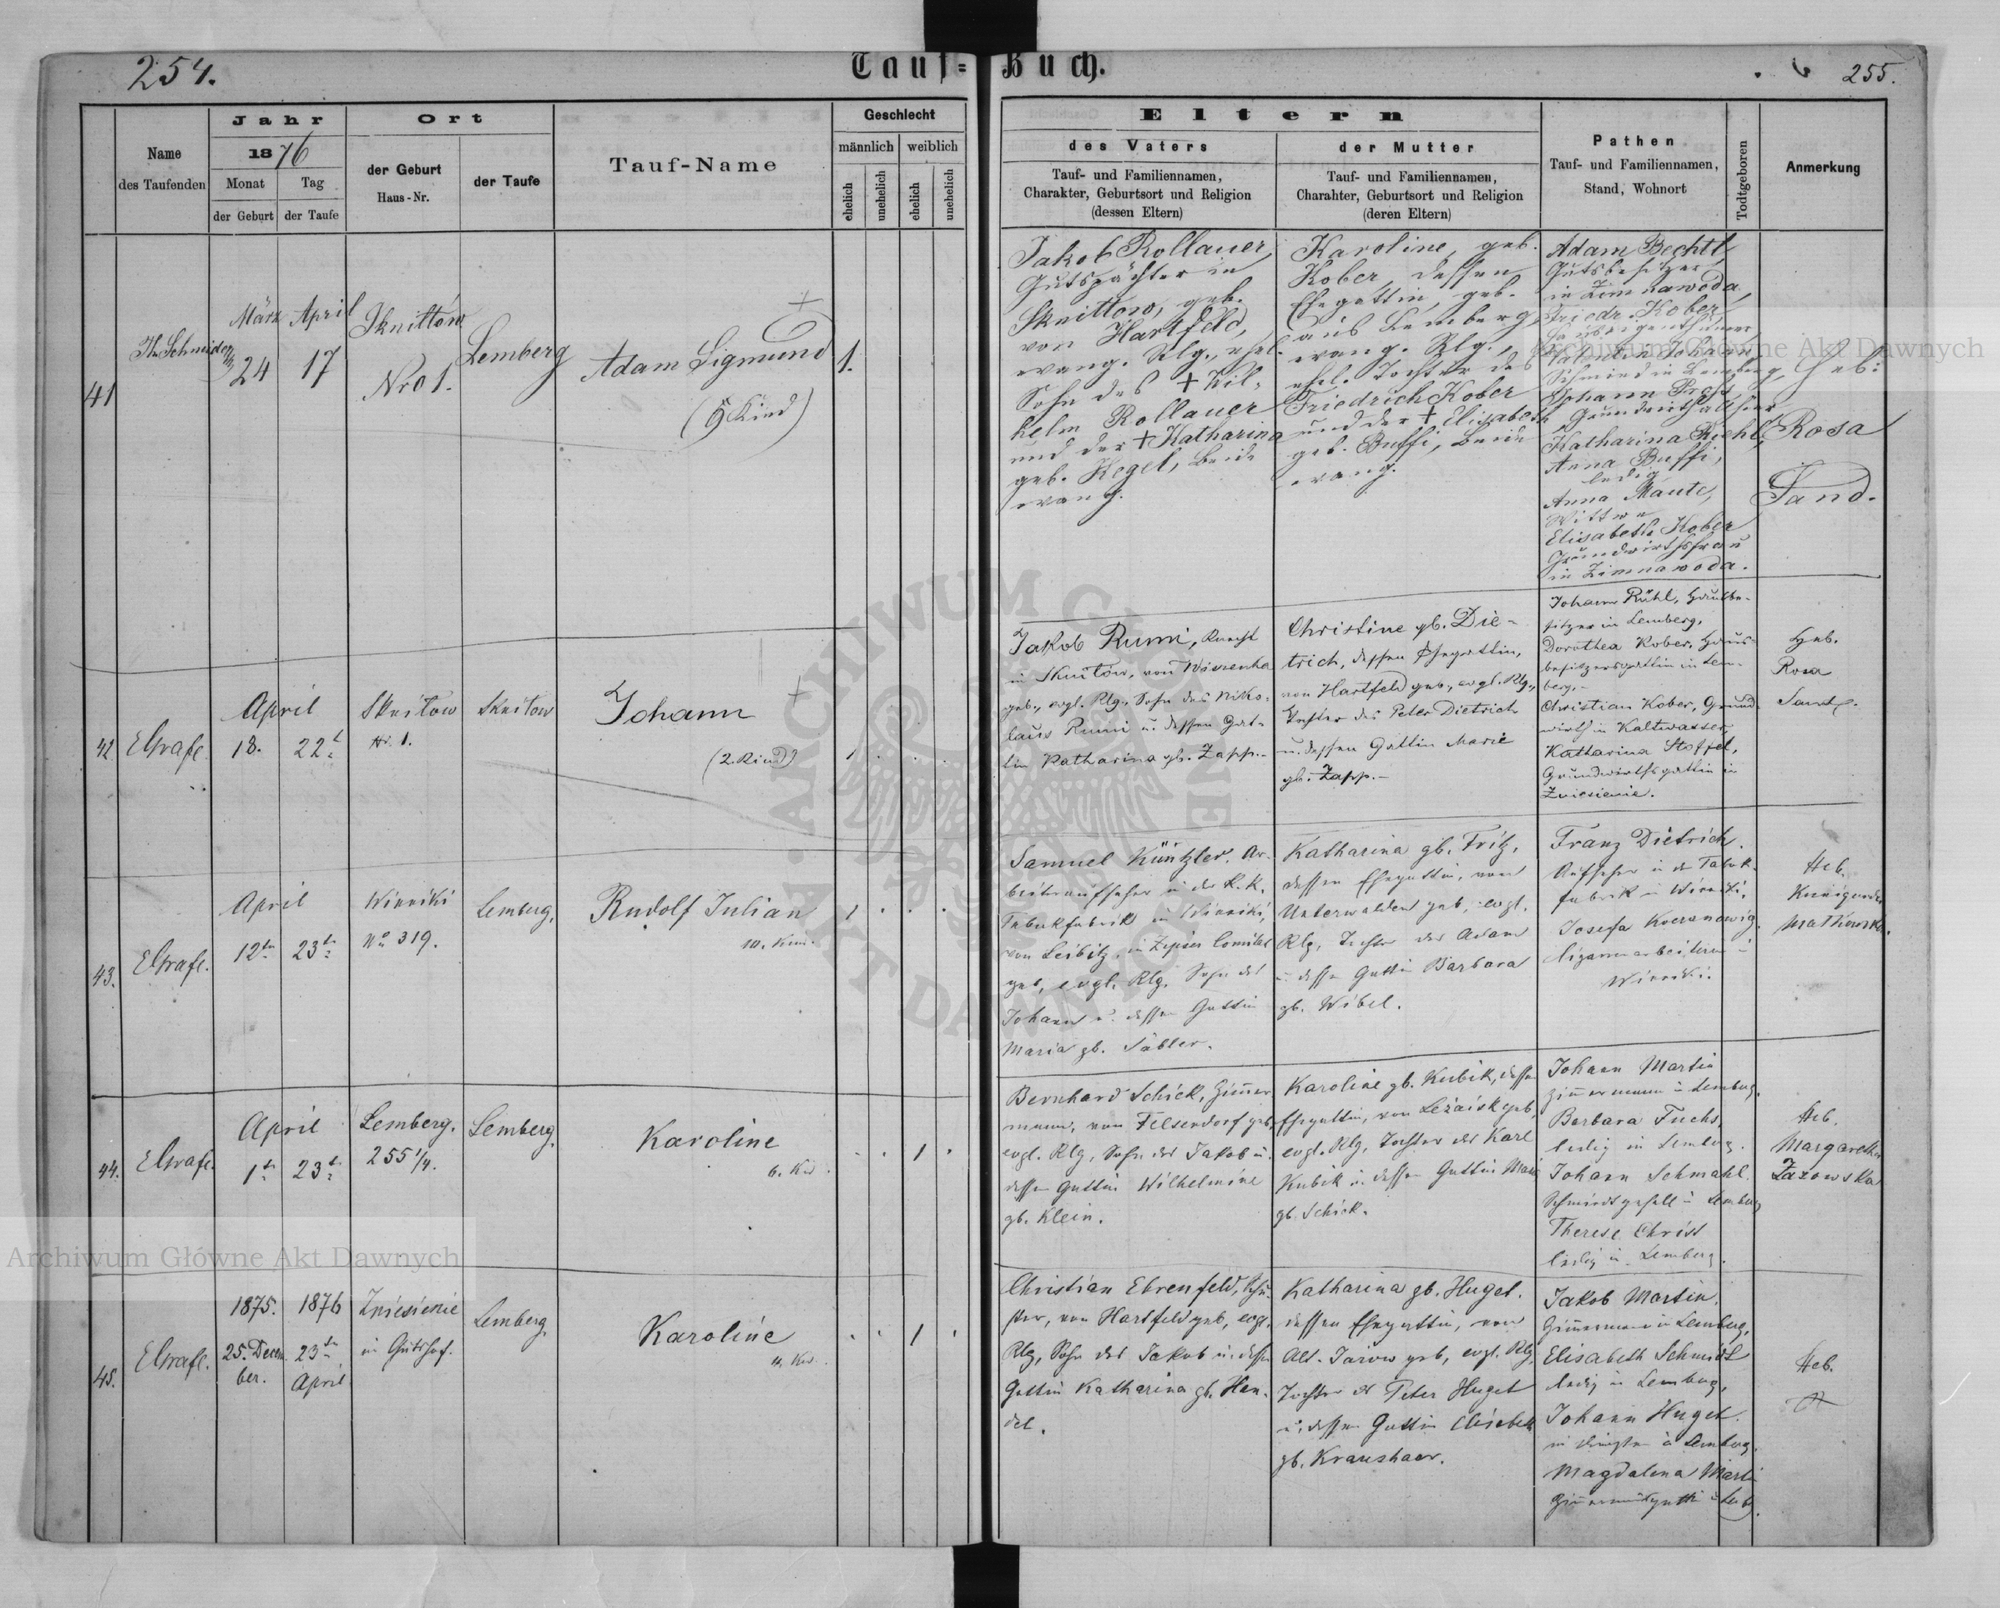 254.
Tauf=
Buch.
255.
Name
des Taufenden
Jahr
1876
Monat
Tag
der Geburt
der Taufe
Ort
der Geburt
Haus-Nr.
der Taufe
Tauf-Name
Geschlecht
männlich
weiblich
ehelich
unehelich
ehelich
unehelich
Eltern
des Vaters
Tauf- und Familiennamen,
Charakter, Geburtsort und Religion
(dessen Eltern)
der Mutter
Tauf- und Familiennamen,
Charahter, Geburtsort und Religion
(deren Eltern)
Pathen
Tauf- und Familiennamen,
Stand, Wohnort
Todtgeboren
Anmerkung
41
März
24
April
17
Sknittow
Nro 1.
Lemberg
Adam Sigmund
(9 Kind)
1.
Jakob Rollauer,
Gutspächter in
Sknittow, geb.
von Hartfeld,
evang. Rlg., ehel.
Sohn des † Wil-
helm Rollauer
und der † Katharina
geb. Kegel, beide
evang.
Karoline, geb.
Kober, dessen
Ehegattin, geb.
aus Lemberg,
evang. Rlg.,
ehel. Tochter des
Friedrich Kober
und der † Elisabeth
geb. Buffi, beide
evang.
Adam Bechtl,
Gutsbesitzer
in Zimnawoda,
Friedr. Kober,
Johann
Schmied in Lemberg,
Johann
Katharina
Anna Buffi,
ledig
Anna Maute,
Wittwe
Elisabeth Kober
Grundwirthsfrau
in Zimnawoda.
Geb:
Rosa
Sand.
42
EGrafe.
April
18.
22t
Sknitow
Nr. 1.
Sknitow
Johann
(2. Kind)
1
Jakob Rumi, Knecht
in Sknitow, von
geb., evgl. Rlg., Sohn des Niko-
laus Rumi u. dessen Gat-
tin Katharina gb. Zapp.-
Christine gb. Die-
trich, dessen Ehegattin,
von Hartfeld geb., evgl. Rlg.,
Tochter des Peter Dietrich
u. dessen Gattin Marie
gb. Zapp.-
Johann Rühl, Hausbe-
sitzer in Lemberg,
Dorothea Kober, Haus-
besitzersgattin in Lem-
berg.-
Christian Kober, Grund-
wirth in Kaltwasser,
Katharina Stoffel,
Grundwirthsgattin in
Zniesienie.
Heb.
Rosa
Sand.
43.
EGrafe.
April
12tn
23tn
Winniki
No 319.
Lemberg.
Rudolf Julian
10. Kind.
1
Samuel Küntzler, Ar-
beiteraufseher in der K. K.
Tabakfabrik in Winniki,
von Leibitz, in Zipser Comitat
geb., evgl. Rlg., Sohn des
Johann u. dessen Gattin
Maria gb. Säbler.
Katharina gb. Fritz,
dessen Ehegattin, von
Unterwalden geb., evgl.
Rlg., Tochter des Adam
u. dessen Gattin Barbara
gb. Wibel.
Franz Dietrich,
Aufseher in der Tabak-
fabrik in Winniki,
Josefa
in
Winniki.
Heb.
44.
EGrafe.
April
1tn
23tn
Lemberg.
255 1/4.
Lemberg.
Karoline
6. Kind.
1
Bernhard Schick, Zimmer-
mann, von Felsendorf geb.
evgl. Rlg., Sohn des Jakob u.
dessen Gattin Wilhelmine
gb. Klein.
Karoline gb. Kubik, dessen
Ehegattin, von Leżaisk geb.,
evgl. Rlg., Tochter des Karl
Kubik u. dessen Gattin Marie
gb. Schick.
Johann Martin
Zimmermann in Lemberg,
Barbara Fuchs,
ledig in Lemberg.
Johann Schmahl
Schmiedgesell in Lemberg
Therese Christ
ledig in Lemberg.
Heb.
Margaretha
Zazowska
45.
EGrafe.
1875.
25. Decem-
ber.
1876
23tn
April
Zniesienie
im Gutshof.
Lemberg.
Karoline
1
Christian Ehrenfeld, Schu-
ster, von Hartfeld geb., evgl.
Rlg., Sohn des Jakob u. dessen
Gattin Katharina gb. Han-
del.
Katharina gb. Huget.
dessen Ehegattin, von
Alt-Jarow geb., evgl. Rlg.,
Tochter d Peter Huget
u. dessen Gattin Elisabeth
gb. Kraushaar.
Jakob Martin,
Zimmermann in Lemberg,
Elisabeth Schmidt
ledig in Lemberg,
Johann Huget.
in Lemberg.
Magdalena Martin
Heb.
Archiwum Główne Akt Dawnych
Archiwum Główne Akt Dawnych
ARCHIWUM GŁÓWNE AKT DAWNYCH